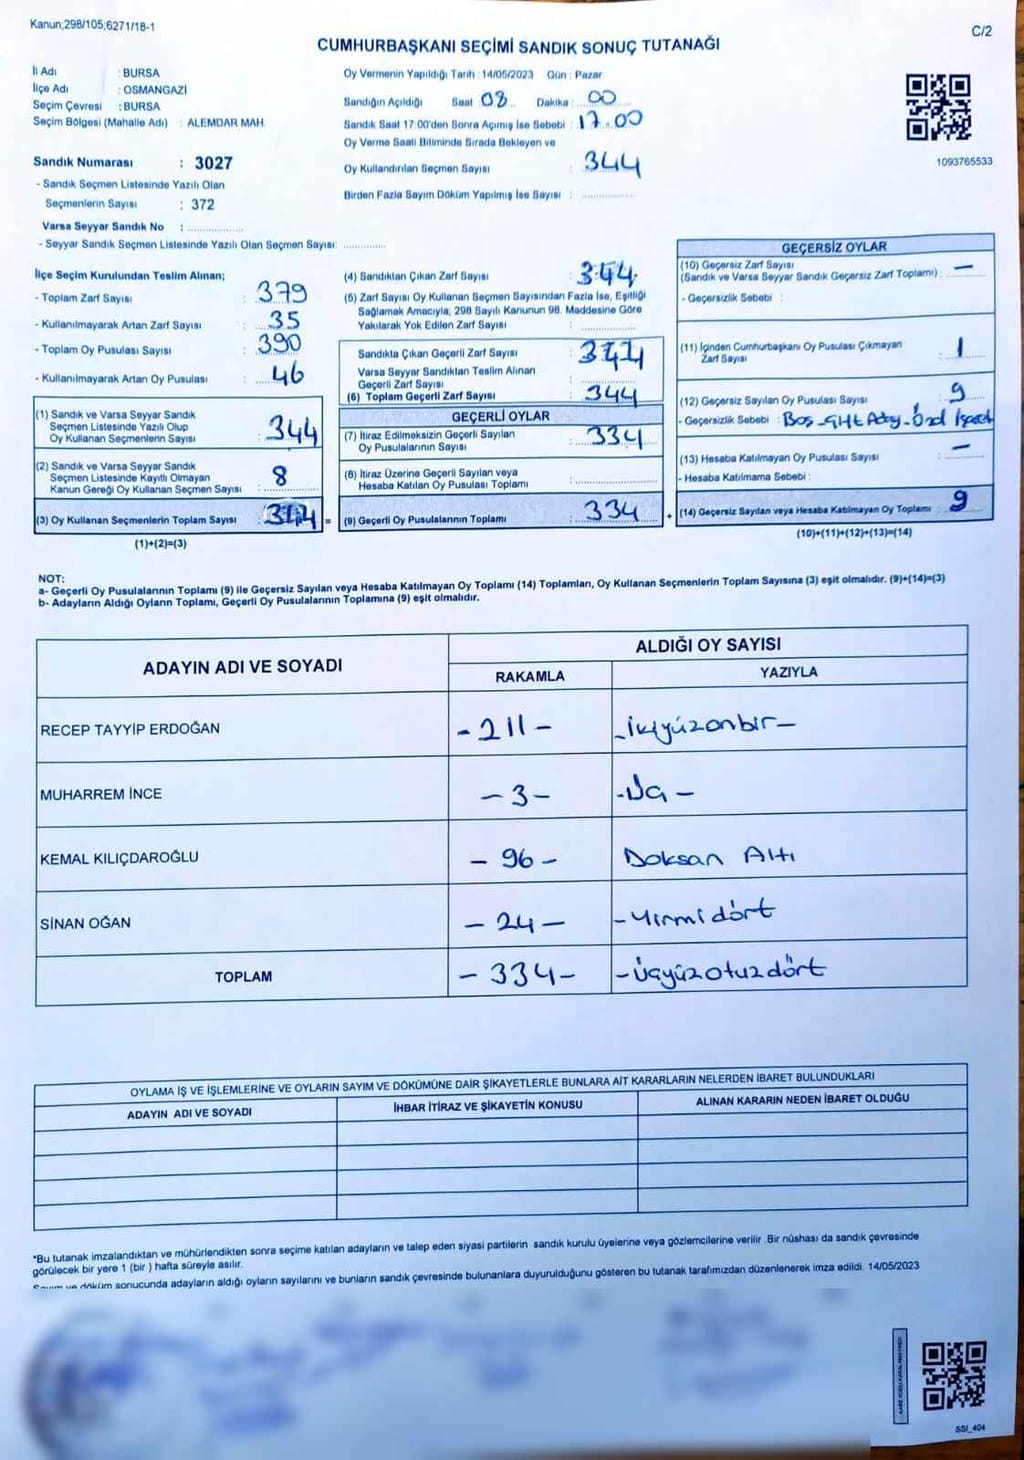 Kanun;298/105;6271/18-1
C/2
CUMHURBAŞKANI SEÇİMİ SANDIK SONUÇ TUTANAĞI
İl Adı : BURSA
İlçe Adı : OSMANGAZİ
Seçim Çevresi : BURSA
Seçim Bölgesi (Mahalle Adı) : ALEMDAR MAH.
Sandık Numarası : 3027
- Sandık Seçmen Listesinde Yazılı Olan
Seçmenlerin Sayısı : 372
Varsa Seyyar Sandık No : ................
- Seyyar Sandık Seçmen Listesinde Yazılı Olan Seçmen Sayısı: ............
Oy Vermenin Yapıldığı Tarih : 14/05/2023 Gün : Pazar
Sandığın Açıldığı Saat 08 Dakika : 00
Sandık Saat 17:00'den Sonra Açımış İse Sebebi : 17.00
Oy Verme Saati Bitiminde Sırada Bekleyen ve
Oy Kullandırılan Seçmen Sayısı : 344
Birden Fazla Sayım Döküm Yapılmış İse Sayısı : ...............
1093765533
İlçe Seçim Kurulundan Teslim Alınan;
- Toplam Zarf Sayısı : 379
- Kullanılmayarak Artan Zarf Sayısı : 35
- Toplam Oy Pusulası Sayısı : 390
- Kullanılmayarak Artan Oy Pusulası : 46
(1) Sandık ve Varsa Seyyar Sandık
Seçmen Listesinde Yazılı Olup
Oy Kullanan Seçmenlerin Sayısı : 344
(2) Sandık ve Varsa Seyyar Sandık
Seçmen Listesinde Kayıtlı Olmayan
Kanun Gereği Oy Kullanan Seçmen Sayısı : 8
(3) Oy Kullanan Seçmenlerin Toplam Sayısı : 344 =
(1)+(2)=(3)
(4) Sandıktan Çıkan Zarf Sayısı : 344
(5) Zarf Sayısı Oy Kullanan Seçmen Sayısından Fazla İse, Eşitliği
Sağlamak Amacıyla, 298 Sayılı Kanunun 98. Maddesine Göre
Yakılarak Yok Edilen Zarf Sayısı : ...............
Sandıkta Çıkan Geçerli Zarf Sayısı : 344
Varsa Seyyar Sandıktan Teslim Alınan
Geçerli Zarf Sayısı : ...............
(6) Toplam Geçerli Zarf Sayısı : 344
GEÇERLİ OYLAR
(7) İtiraz Edilmeksizin Geçerli Sayılan
Oy Pusulalarının Sayısı : 334
(8) İtiraz Üzerine Geçerli Sayılan veya
Hesaba Katılan Oy Pusulası Toplamı : ...............
(9) Geçerli Oy Pusulalarının Toplamı : 334 +
GEÇERSİZ OYLAR
(10) Geçersiz Zarf Sayısı
(Sandık ve Varsa Seyyar Sandık Geçersiz Zarf Toplamı) : —
- Geçersizlik Sebebi :
(11) İçinden Cumhurbaşkanı Oy Pusulası Çıkmayan
Zarf Sayısı : 1
(12) Geçersiz Sayılan Oy Pusulası Sayısı : 9
- Geçersizlik Sebebi : Boş - Çift Aday - Özel İşaret
(13) Hesaba Katılmayan Oy Pusulası Sayısı : —
- Hesaba Katılmama Sebebi :
(14) Geçersiz Sayılan veya Hesaba Katılmayan Oy Toplamı : 9
(10)+(11)+(12)+(13)=(14)
NOT:
a- Geçerli Oy Pusulalarının Toplamı (9) ile Geçersiz Sayılan veya Hesaba Katılmayan Oy Toplamı (14) Toplamları, Oy Kullanan Seçmenlerin Toplam Sayısına (3) eşit olmalıdır. (9)+(14)=(3)
b- Adayların Aldığı Oyların Toplamı, Geçerli Oy Pusulalarının Toplamına (9) eşit olmalıdır.
ADAYIN ADI VE SOYADI ALDIĞI OY SAYISI
RAKAMLA YAZIYLA
RECEP TAYYİP ERDOĞAN - 211 - - İkiyüzonbir -
MUHARREM İNCE - 3 - - Üç -
KEMAL KILIÇDAROĞLU - 96 - Doksan Altı
SİNAN OĞAN - 24 - - Yirmidört
TOPLAM - 334 - - Üçyüzotuzdört
OYLAMA İŞ VE İŞLEMLERİNE VE OYLARIN SAYIM VE DÖKÜMÜNE DAİR ŞİKAYETLERLE BUNLARA AİT KARARLARIN NELERDEN İBARET BULUNDUKLARI
ADAYIN ADI VE SOYADI İHBAR İTİRAZ VE ŞİKAYETİN KONUSU ALINAN KARARIN NEDEN İBARET OLDUĞU
*Bu tutanak imzalandıktan ve mühürlendikten sonra seçime katılan adayların ve talep eden siyasi partilerin sandık kurulu üyelerine veya gözlemcilerine verilir .Bir nüshası da sandık çevresinde
görülecek bir yere 1 (bir ) hafta süreyle asılır.
Sayım ve döküm sonucunda adayların aldığı oyların sayılarını ve bunların sandık çevresinde bulunanlara duyurulduğunu gösteren bu tutanak tarafımızdan düzenlenerek imza edildi. 14/05/2023
SSI_404